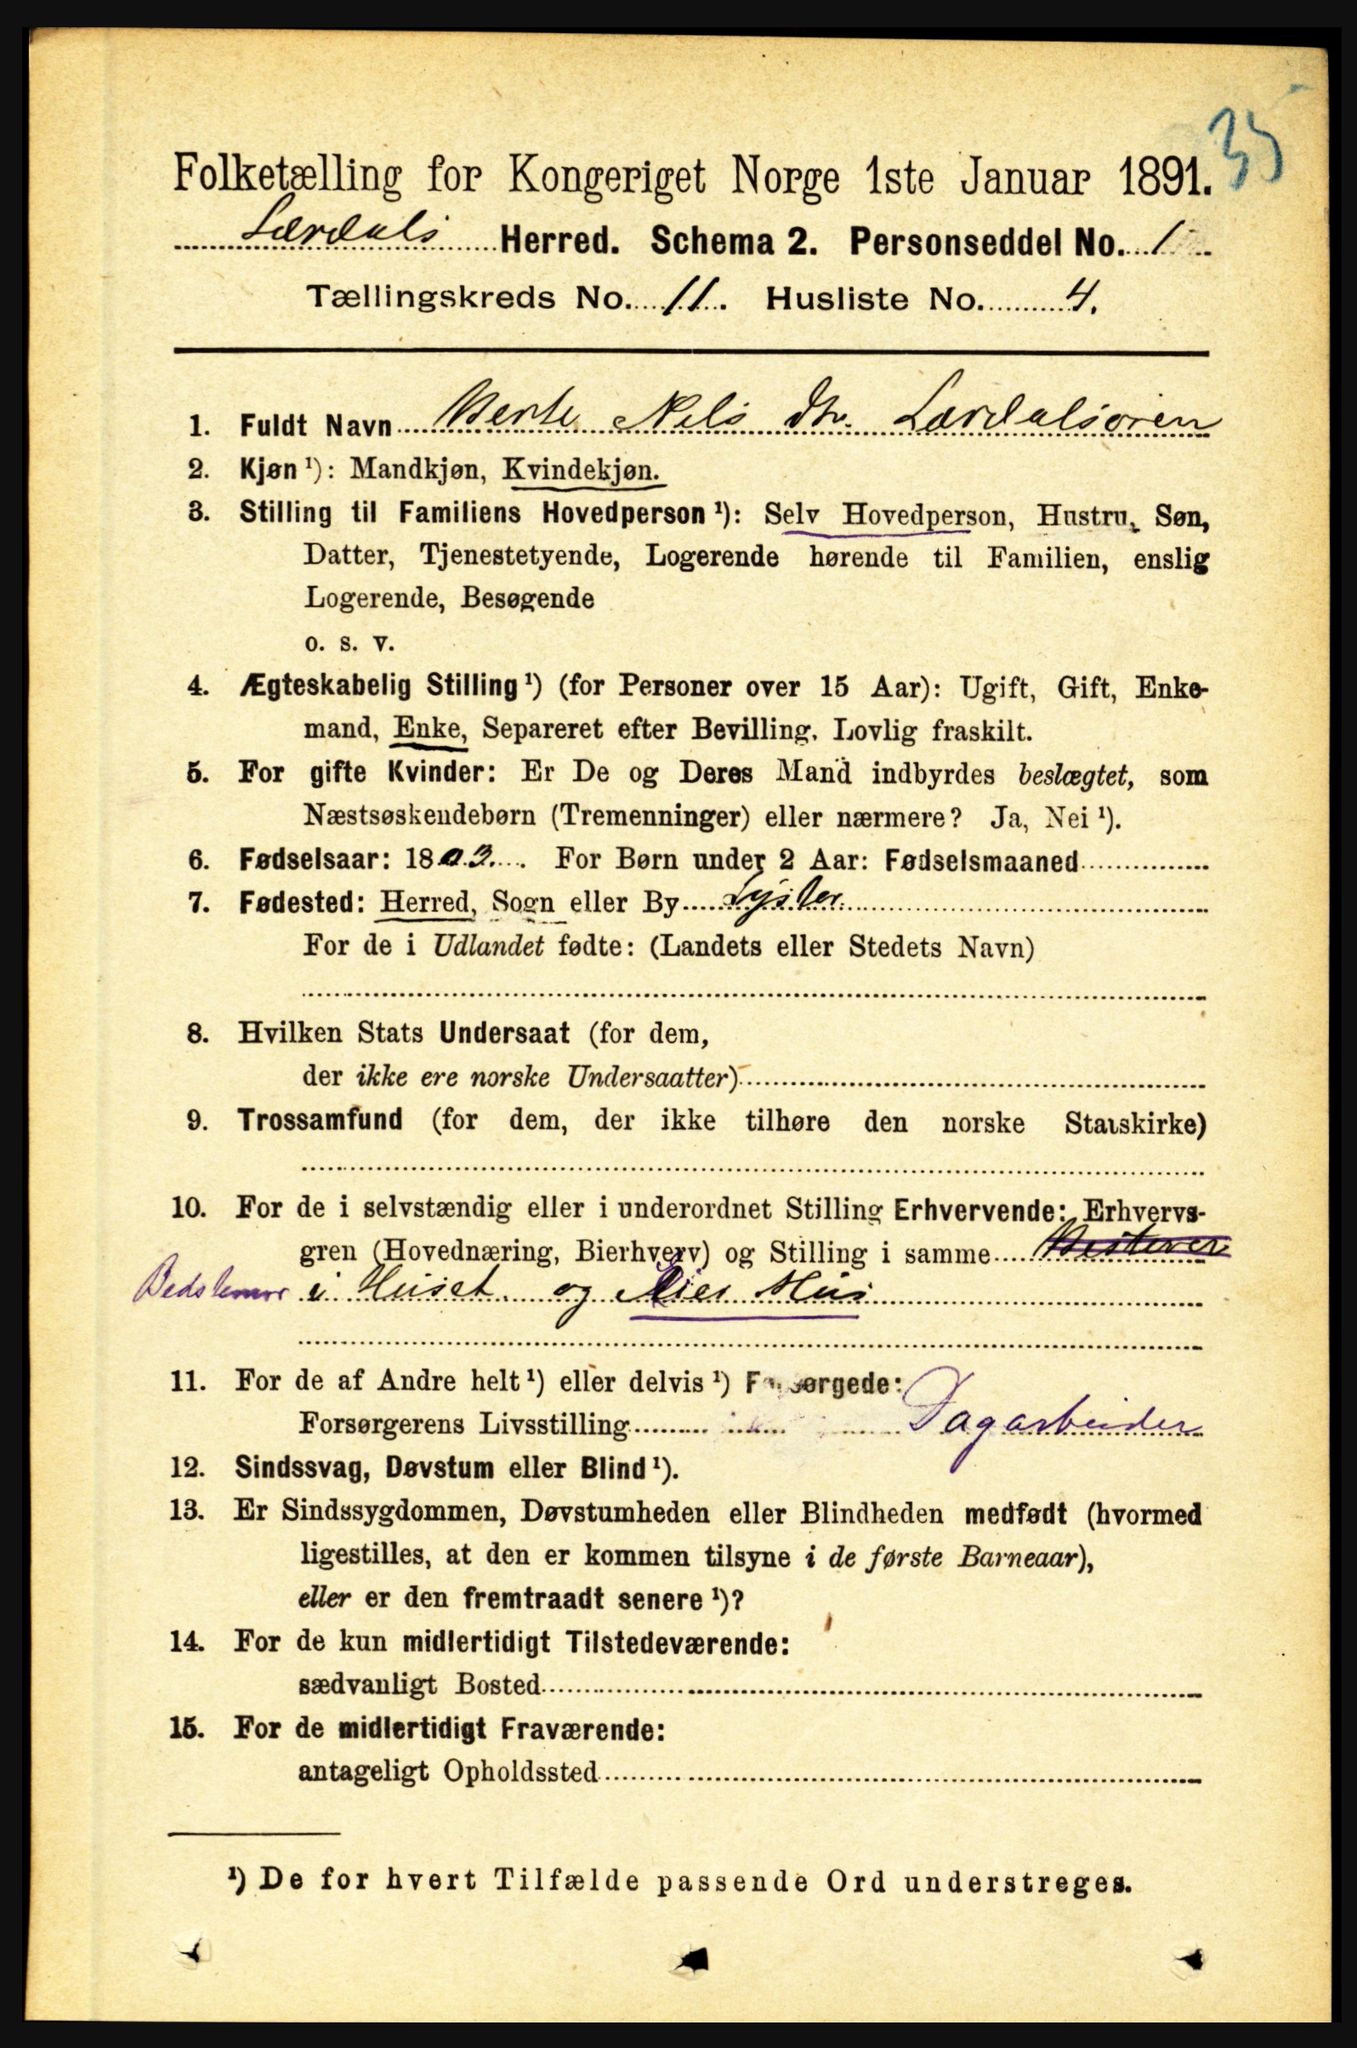 35
Folketælling for Kongeriget Norge 1ste Januar 1891.
Lærdals Herred. Schema 2. Personseddel No. 1
Tællingskreds No. 11. Husliste No. 4.
1. Fuldt Navn Berte Nils Dtr. Lærdalsøren
2. Kjøn ¹): Mandkjøn, Kvindekjøn.
3. Stilling til Familiens Hovedperson ¹): Selv Hovedperson, Hustru, Søn,
Datter, Tjenestetyende, Logerende hørende til Familien, enslig
Logerende, Besøgende
o. s. v.
4. Ægteskabelig Stilling ¹) (for Personer over 15 Aar): Ugift, Gift, Enke-
mand, Enke, Separeret efter Bevilling. Lovlig fraskilt.
5. For gifte Kvinder: Er De og Deres Mand indbyrdes beslægtet, som
Næstsøskendebørn (Tremenninger) eller nærmere? Ja, Nei ¹).
6. Fødselsaar: 1803. For Børn under 2 Aar: Fødselsmaaned
7. Fødested: Herred, Sogn eller By Lyster
For de i Udlandet fødte: (Landets eller Stedets Navn)
8. Hvilken Stats Undersaat (for dem,
der ikke ere norske Undersaatter)
9. Trossamfund (for dem, der ikke tilhøre den norske Statskirke)
10. For de i selvstændig eller i underordnet Stilling Erhvervende: Erhvervs-
gren (Hovednæring, Bierhverv) og Stilling i samme
Bedstemor i Huset og Eier Hus
11. For de af Andre helt ¹) eller delvis ¹) Forsørgede:
Forsørgerens Livsstilling Dagarbeider
12. Sindssvag, Døvstum eller Blind ¹).
13. Er Sindssygdommen, Døvstumheden eller Blindheden medfødt (hvormed
ligestilles, at den er kommen tilsyne i de første Barneaar),
eller er den fremtraadt senere ¹)?
14. For de kun midlertidigt Tilstedeværende:
sædvanligt Bosted
15. For de midlertidigt Fraværende:
antageligt Opholdssted
¹) De for hvert Tilfælde passende Ord understreges.